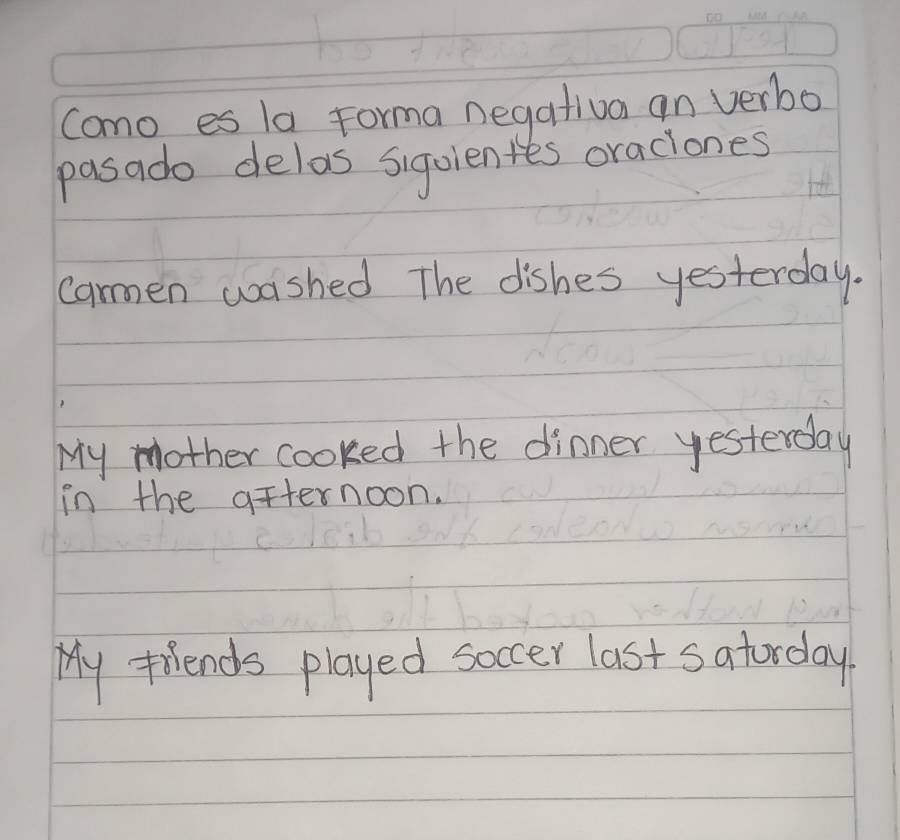 DD MM AA
Como es la Forma negativa an verbo
pasado delas siguientes oraciones
Carmen washed The dishes yesterday.
My mother cooked the dinner yesterday
in the afternoon.
My friends played soccer last saturday.